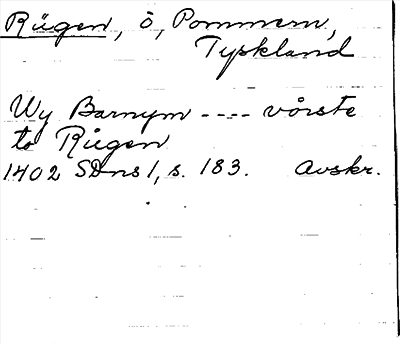 Rügen, ö, Pommern,
Tyskland
Wy Barnym ---- vórste
to Rügen
1402 SDns 1, s. 183. Avskr.